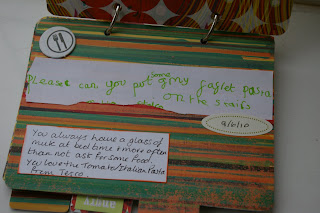 Please can you put some of my faflet pasta
on the stairs
9/6/10
You always have a glass of
milk at bed time & more often
than not ask for some food.
You love the Tomato/Italian Pasta
from Tesco